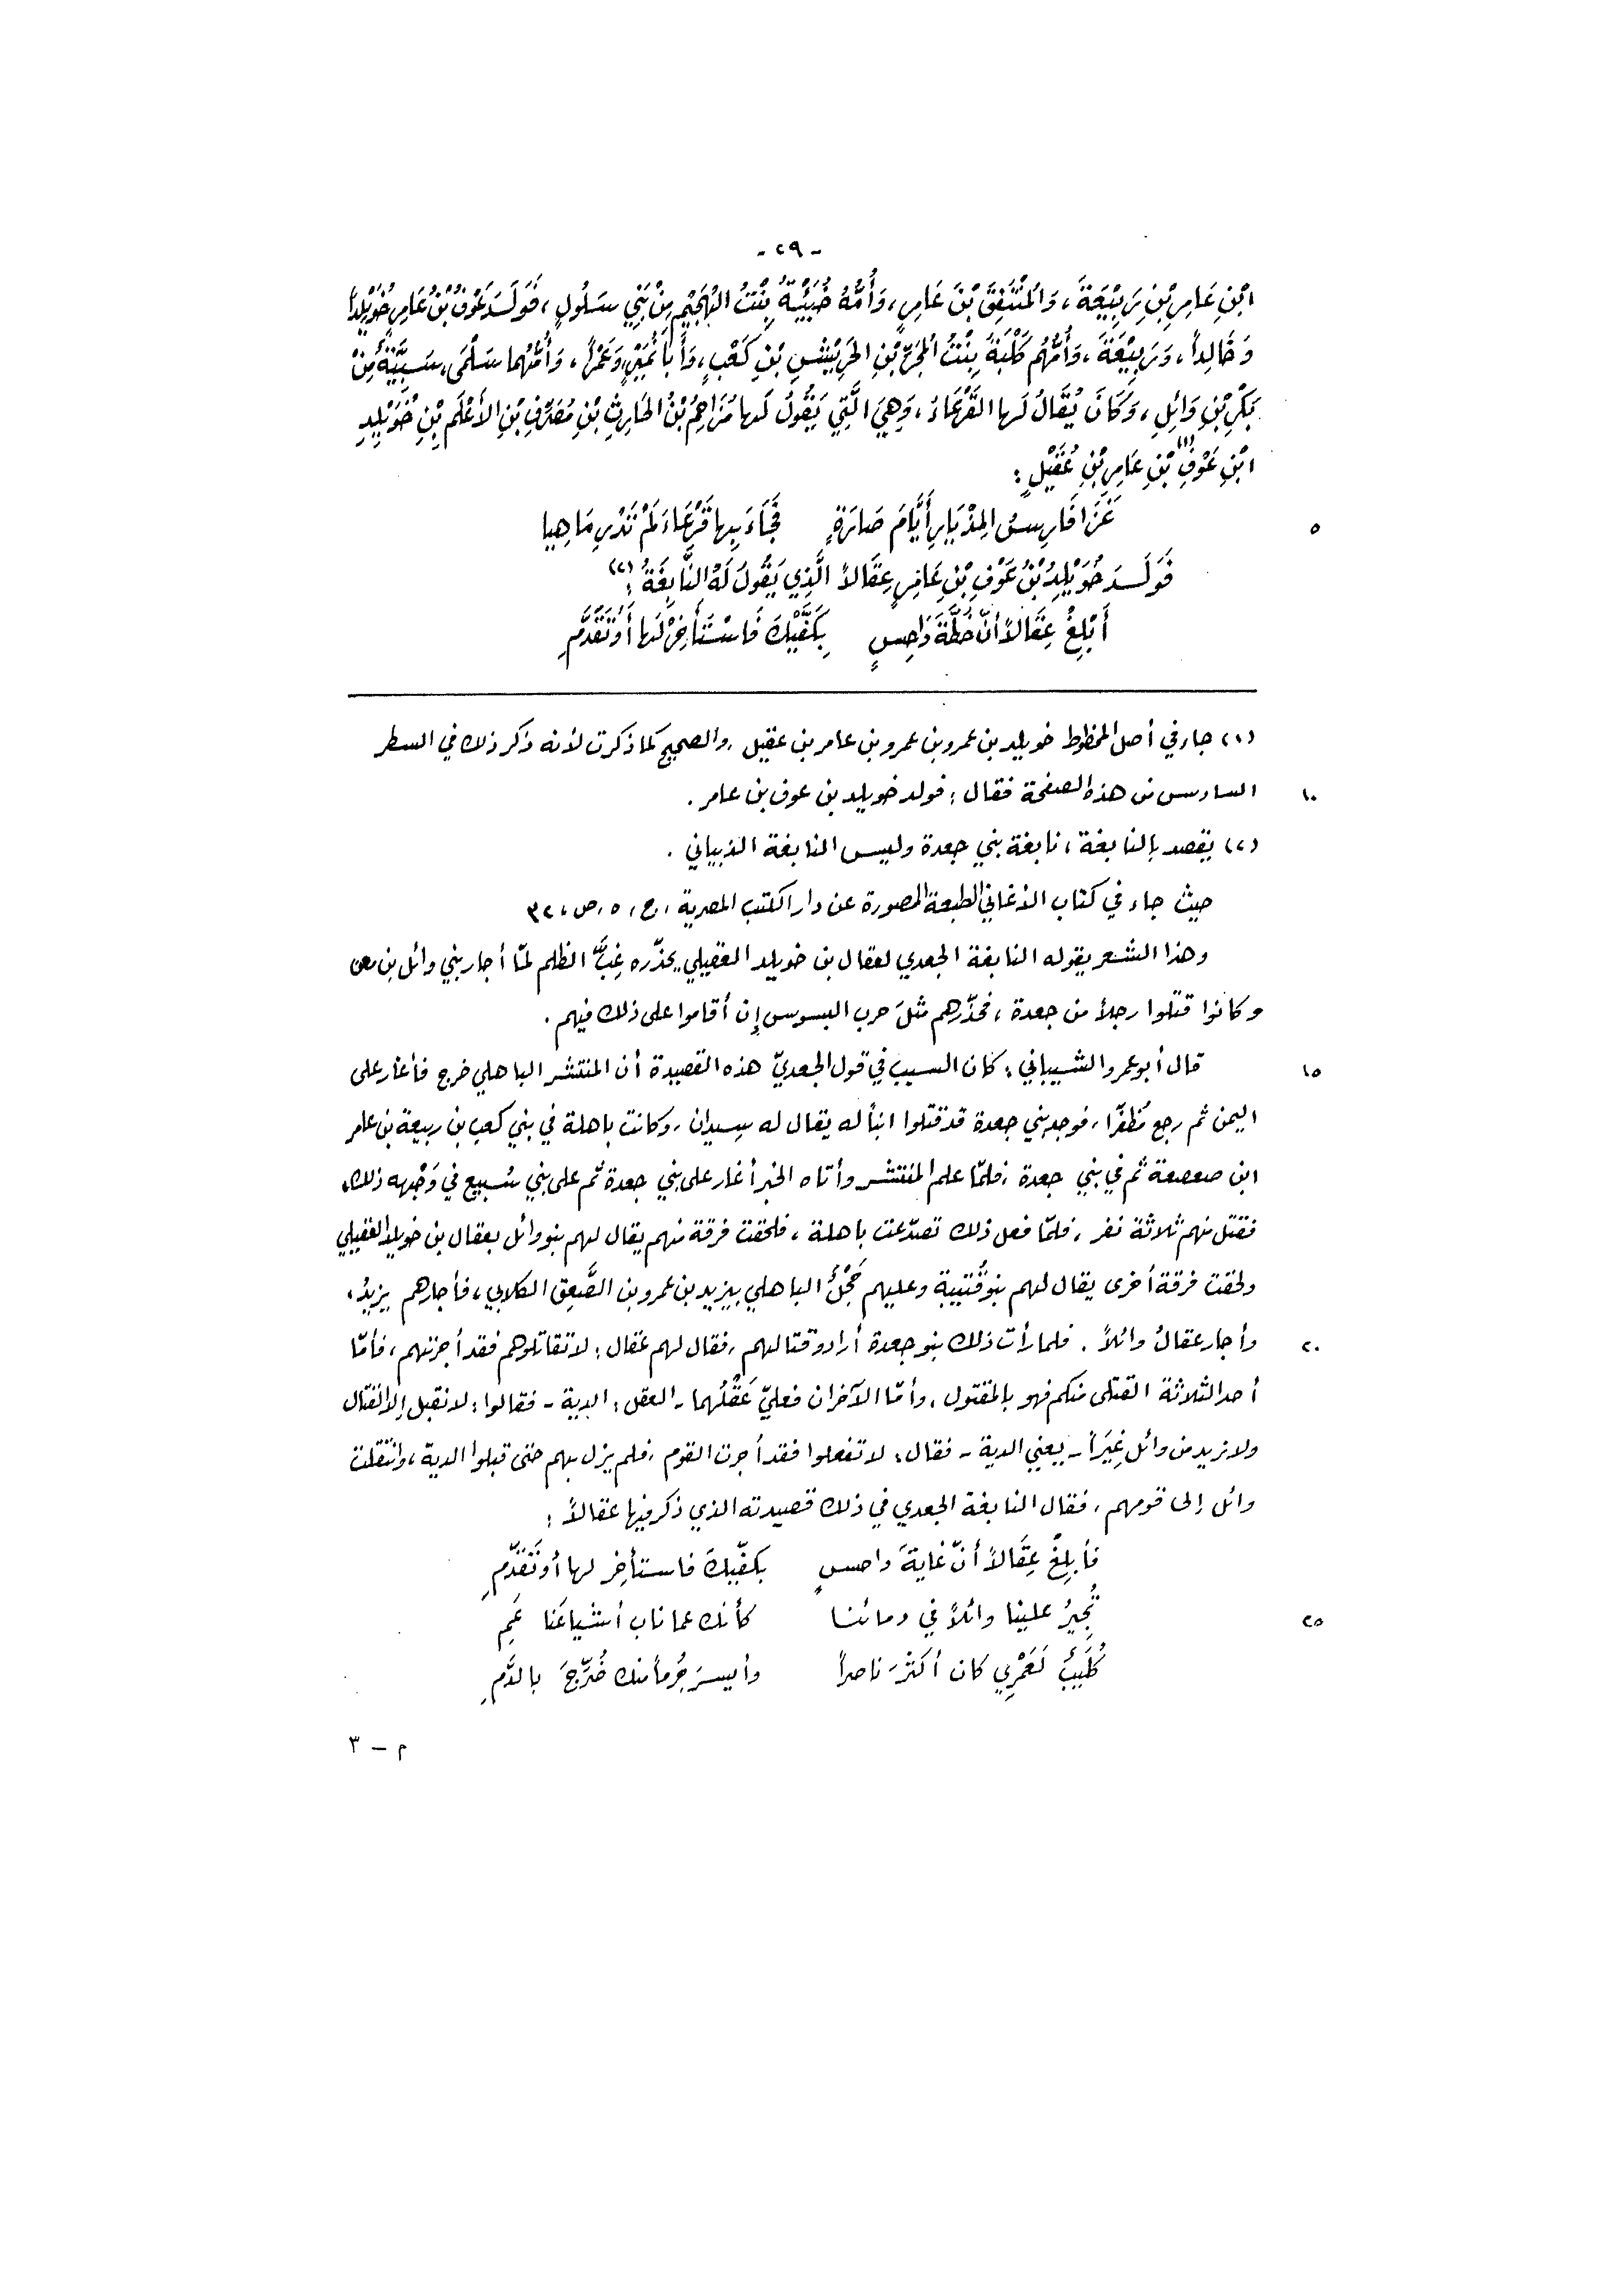 - ٢٩ -
ابْنِ عَامِرِ بْنِ رَبِيْعَةَ، وَالمُنْتَفِقَ بْنَ عَامِرٍ، وَأُمُّهُ خُبَيْئَةُ بِنْتُ الهُجَيْمِ مِنْ بَنِي سَلُولٍ، فَوَلَدَ عَوْفُ بْنُ عَامِرٍ خُوَيْلِدَاً
وَخَالِداً، وَرَبِيْعَةَ، وَأُمُّهُم كَلْبَةُ بِنْتُ المُجَرِّ بْنِ الحَرِيْشِ بْنِ كَعْبٍ، وَأَبَا نُمَيْرٍ، وَعَمْراً، وَأُمُّهُما سَلْمَى، سَبِيَّةٌ مِنْ
بَكْرِ بْنِ وَائِلٍ، وَكَانَ يُقَالُ لَها القَرْعَاءُ، وَهِيَ الَّتِي يَقُولُ لَها مُزَاحِمُ بْنُ الحَارِثِ بْنِ مُصَرِّفِ بْنِ الأَعْلَمِ بْنِ خُوَيْلِدِ
ابْنِ عَوْفِ (١) بْنِ عَامِرِ بْنِ عُقَيْلٍ :
٥ غَزَا فَارِسُ المِذْيَارِ أَيَّامَ صَارَةٍ فَجَاءَ بِها قَرْعَاءَ لَمْ تَدْرِ مَا هِيا
فَوَلَدَ خُوَيْلِدُ بْنُ عَوْفِ بْنِ عَامِرٍ عِقَالاً الَّذِي يَقُولُ لَهُ النَّابِغَةُ (٢) :
أَبْلِغْ عِقَالاً أَنَّ خُطَّةَ دَاحِسٍ بِكَفَّيْكَ فَاسْتَأْخِرْ لَها أَوْ تَقَدَّمِ
(١) جاء في أصل المخطوط خويلد بن عمرو بن عمرو بن عامر بن عقيل، والصحيح كما ذكرت لأنه ذكر ذلك في السطر
١٠ السادس من هذه الصفحة فقال : فولد خويلد بن عوف بن عامر .
(٢) يقصد بالنابغة، نابغة بني جعدة وليس النابغة الذبياني .
حيث جاء في كتاب الأغاني الطبعة المصورة عن دار الكتب المصرية، ج، ٥، ص، ٣٢
وهذا الشعر يقوله النابغة الجعدي لعقال بن خويلد العقيلي يحذّره غِبَّ الظلم لمّا أجار بني وائل بن معن
وكانوا قتلوا رجلاً من جعدة، فحذّرهم مثلَ حرب البسوس إن أقاموا على ذلك فيهم .
١٥ قال أبو عمرو الشيباني : كان السبب في قول الجعديّ هذه القصيدة أن المنتشر الباهلي خرج فأغار على
اليمن ثم رجع مُظفَّرا، فوجد بني جعدة قد قتلوا ابناً له يقال له سيدان، وكانت باهلة في بني كعب بن ربيعة بن عامر
ابن صعصعة ثم في بني جعدة، فلمّا علم المنتشر وأتاه الخبر أغار على بني جعدة ثم على بني سُبيع في وَجْهه ذلك،
فقتل منهم ثلاثة نفر، فلمّا فعل ذلك تصدّعت باهلة، فلحقت فرقة منهم يقال لهم بنو وائل بعقال بن خويلد العقيلي
ولحقت فرقة أخرى يقال لهم بنو قُتيبة وعليهم حَجْلٌ الباهلي بيزيد بن عمرو بن الصَّعِق الكلابي، فأجارهم يزيدُ،
٢٠ وأجار عقالٌ وائلاً . فلما رأت ذلك بنو جعدة أرادوا قتالهم، فقال لهم عقال : لا تقاتلوهم فقد أجرتهم، فأمّا
أحد الثلاثة القتلى منكم فهو بالمقتول، وأمّا الآخران فعليّ عَقْلُهما - العقل : الدية - فقالوا : لا نقبل إلا القتال
ولا نريد من وائل غِيَراً - يعني الدية - فقال : لا تفعلوا فقد أجرت القوم، فلم يزل بهم حتى قبلوا الدية، وانتقلت
وائل إلى قومهم، فقال النابغة الجعدي في ذلك قصيدته الذي ذكر فيها عقالاً :
فأبلِغْ عِقَالاً أنّ غايةَ داحسٍ بكفّيكَ فاستأخِر لها أو تَقَدَّمِ
٢٥ تُجِيرُ علينا وائلاً في دمائنا كأنك عما ناب أشياعَنا عَمِ
كُلَيبٌ لَعَمْرِي كان أكثرَ ناصراً وأيسرَ جُرماً منك ضُرِّجَ بالدَّمِ
م - ٣